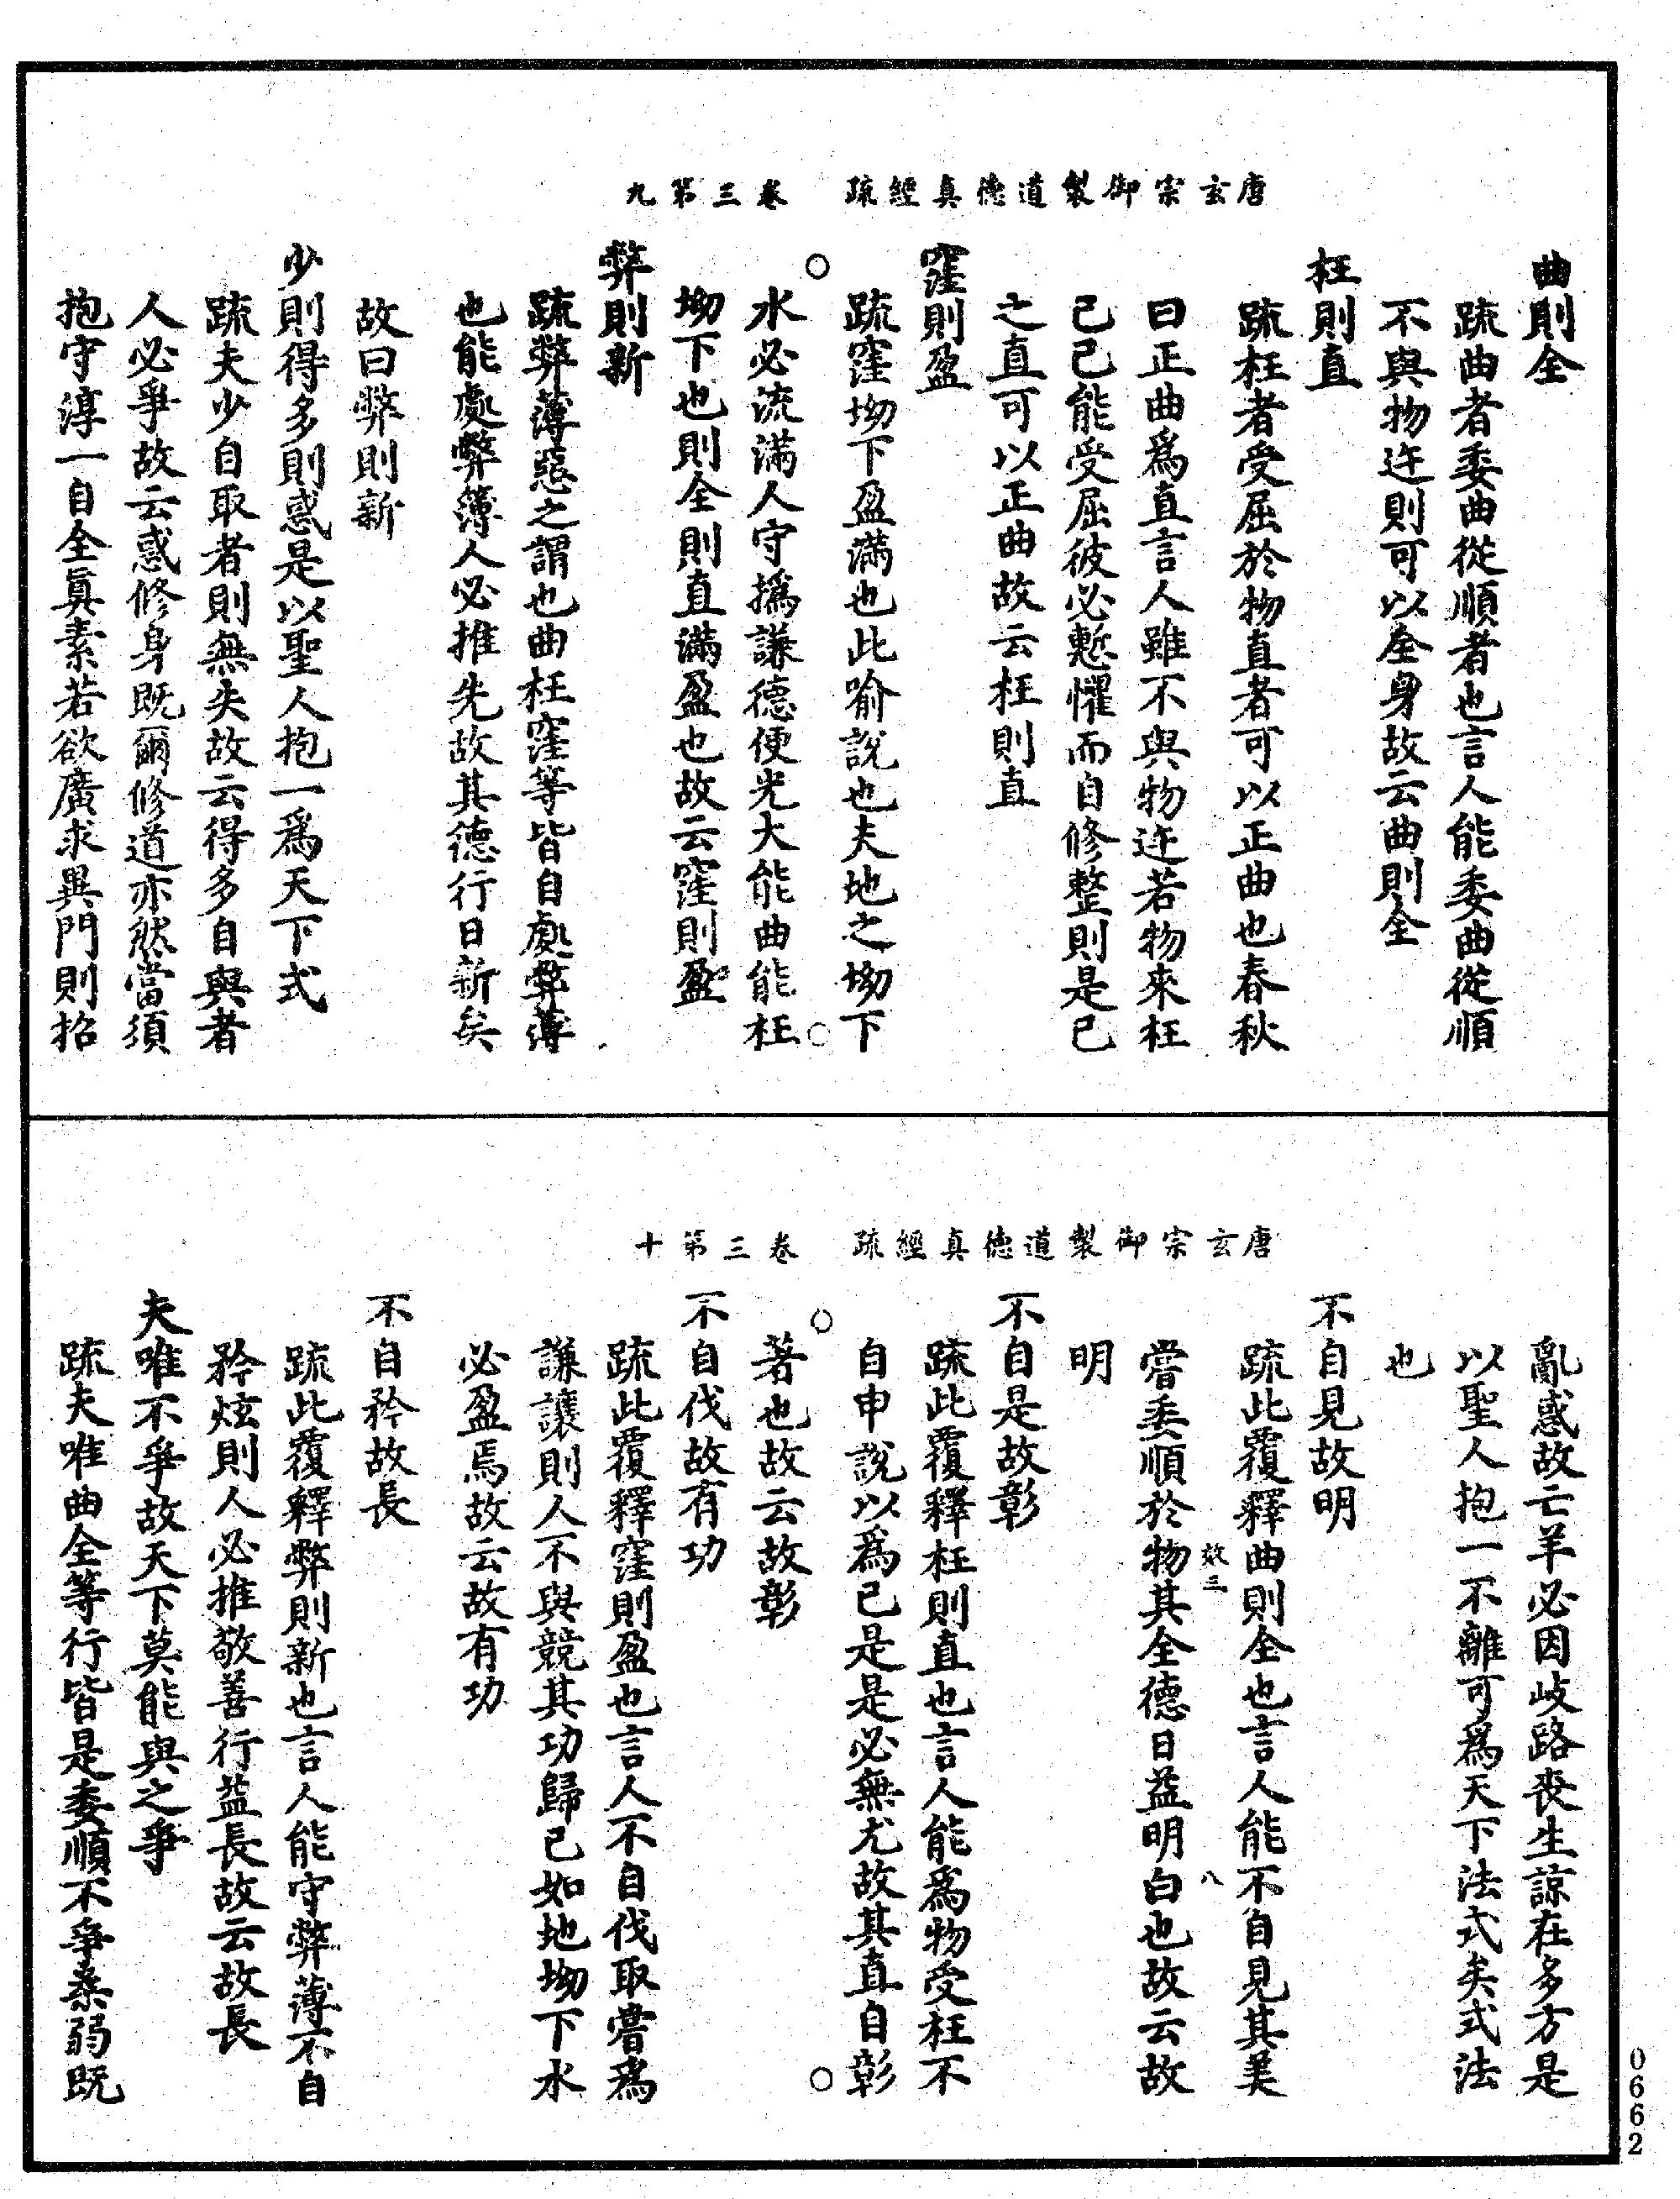 唐玄宗御製道德真經疏　卷三第九
曲則全
疏曲者委曲從順者也言人能委曲從順
不與物迕則可以全身故云曲則全
枉則直
疏枉者受屈於物直者可以正曲也春秋
曰正曲爲直言人雖不與物迕若物來枉
己己能受屈彼必慙懼而自修整則是己
之直可以正曲故云枉則直
窪則盈
疏窪坳下盈滿也此喻說也夫地之坳下
水必流滿人守撝謙德便光大能曲能枉
坳下也則全則直滿盈也故云窪則盈
弊則新
疏弊薄惡之謂也曲枉窪等皆自處弊薄
也能處弊薄人必推先故其德行日新矣
故曰弊則新
少則得多則惑是以聖人抱一爲天下式
疏夫少自取者則無失故云得多自與者
人必爭故云惑修身既爾修道亦然當須
抱守淳一自全眞素若欲廣求異門則招
唐玄宗御製道德真經疏　卷三第十
亂惑故亡羊必因歧路喪生諒在多方是
以聖人抱一不離可爲天下法式矣式法
也
不自見故明
疏此覆釋曲則全也言人能不自見其美
效三　八
嘗委順於物其全德日益明白也故云故
明
不自是故彰
疏此覆釋枉則直也言人能爲物受枉不
自申說以爲己是是必無尤故其直自彰
著也故云故彰
不自伐故有功
疏此覆釋窪則盈也言人不自伐取嘗爲
謙讓則人不與競其功歸己如地坳下水
必盈焉故云故有功
不自矜故長
疏此覆釋弊則新也言人能守弊薄不自
矜炫則人必推敬善行益長故云故長
夫唯不爭故天下莫能與之爭
疏夫唯曲全等行皆是委順不爭柔弱既
0662